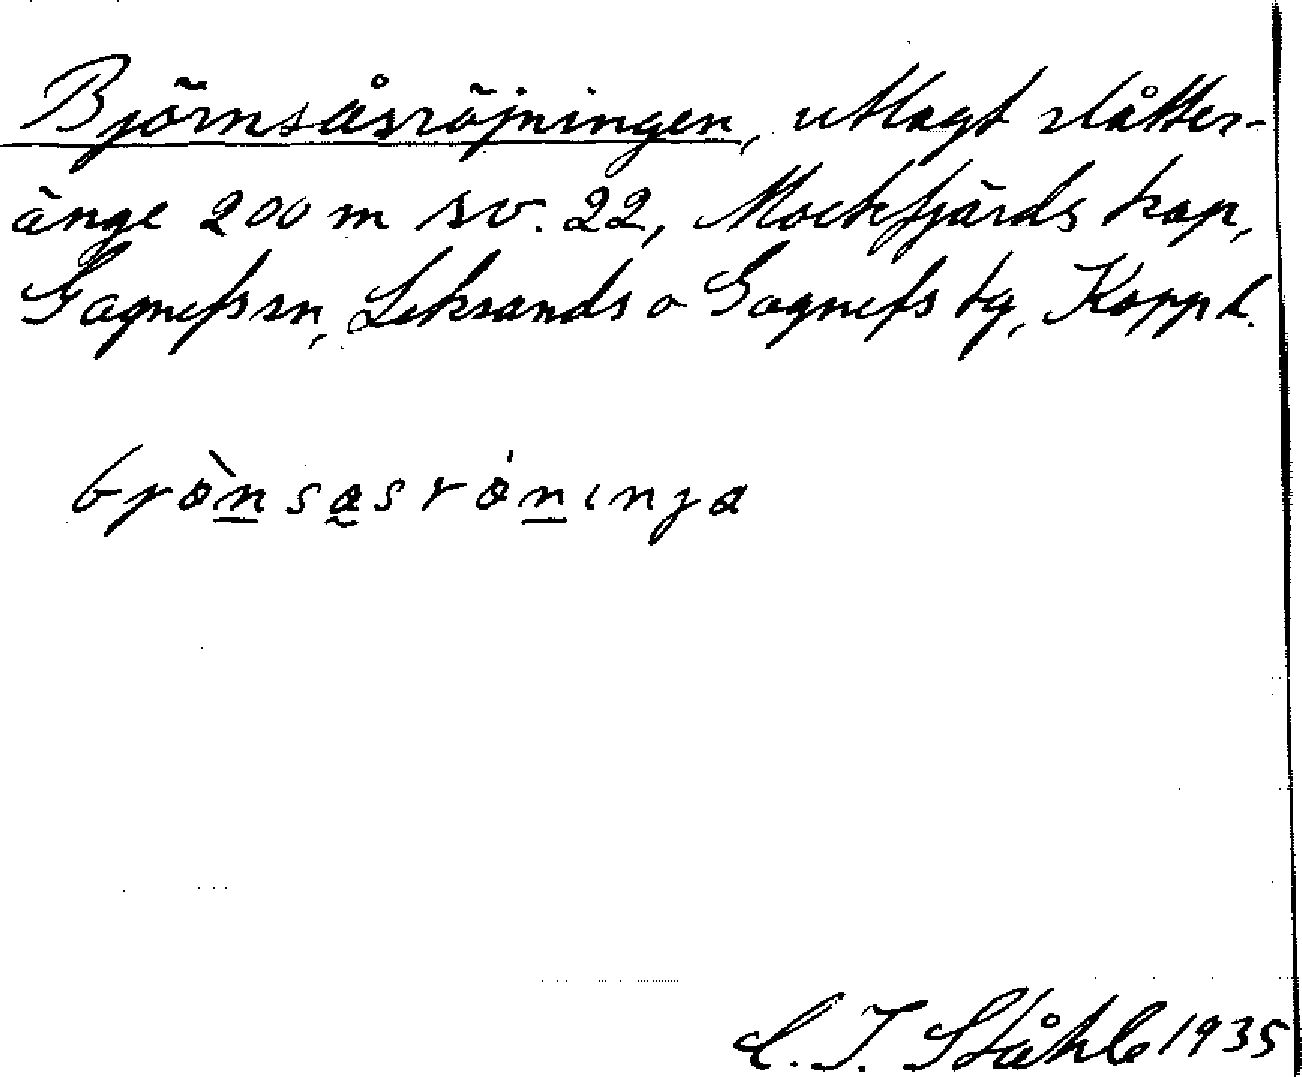 Björnsåsröjningen, utlagt slåtter-
änge 200 m sv. 22, Mockfjärds kap,
Gagnefs sn, Leksands o Gagnefs tg, Kopp l.
C. I. Ståhle 1935